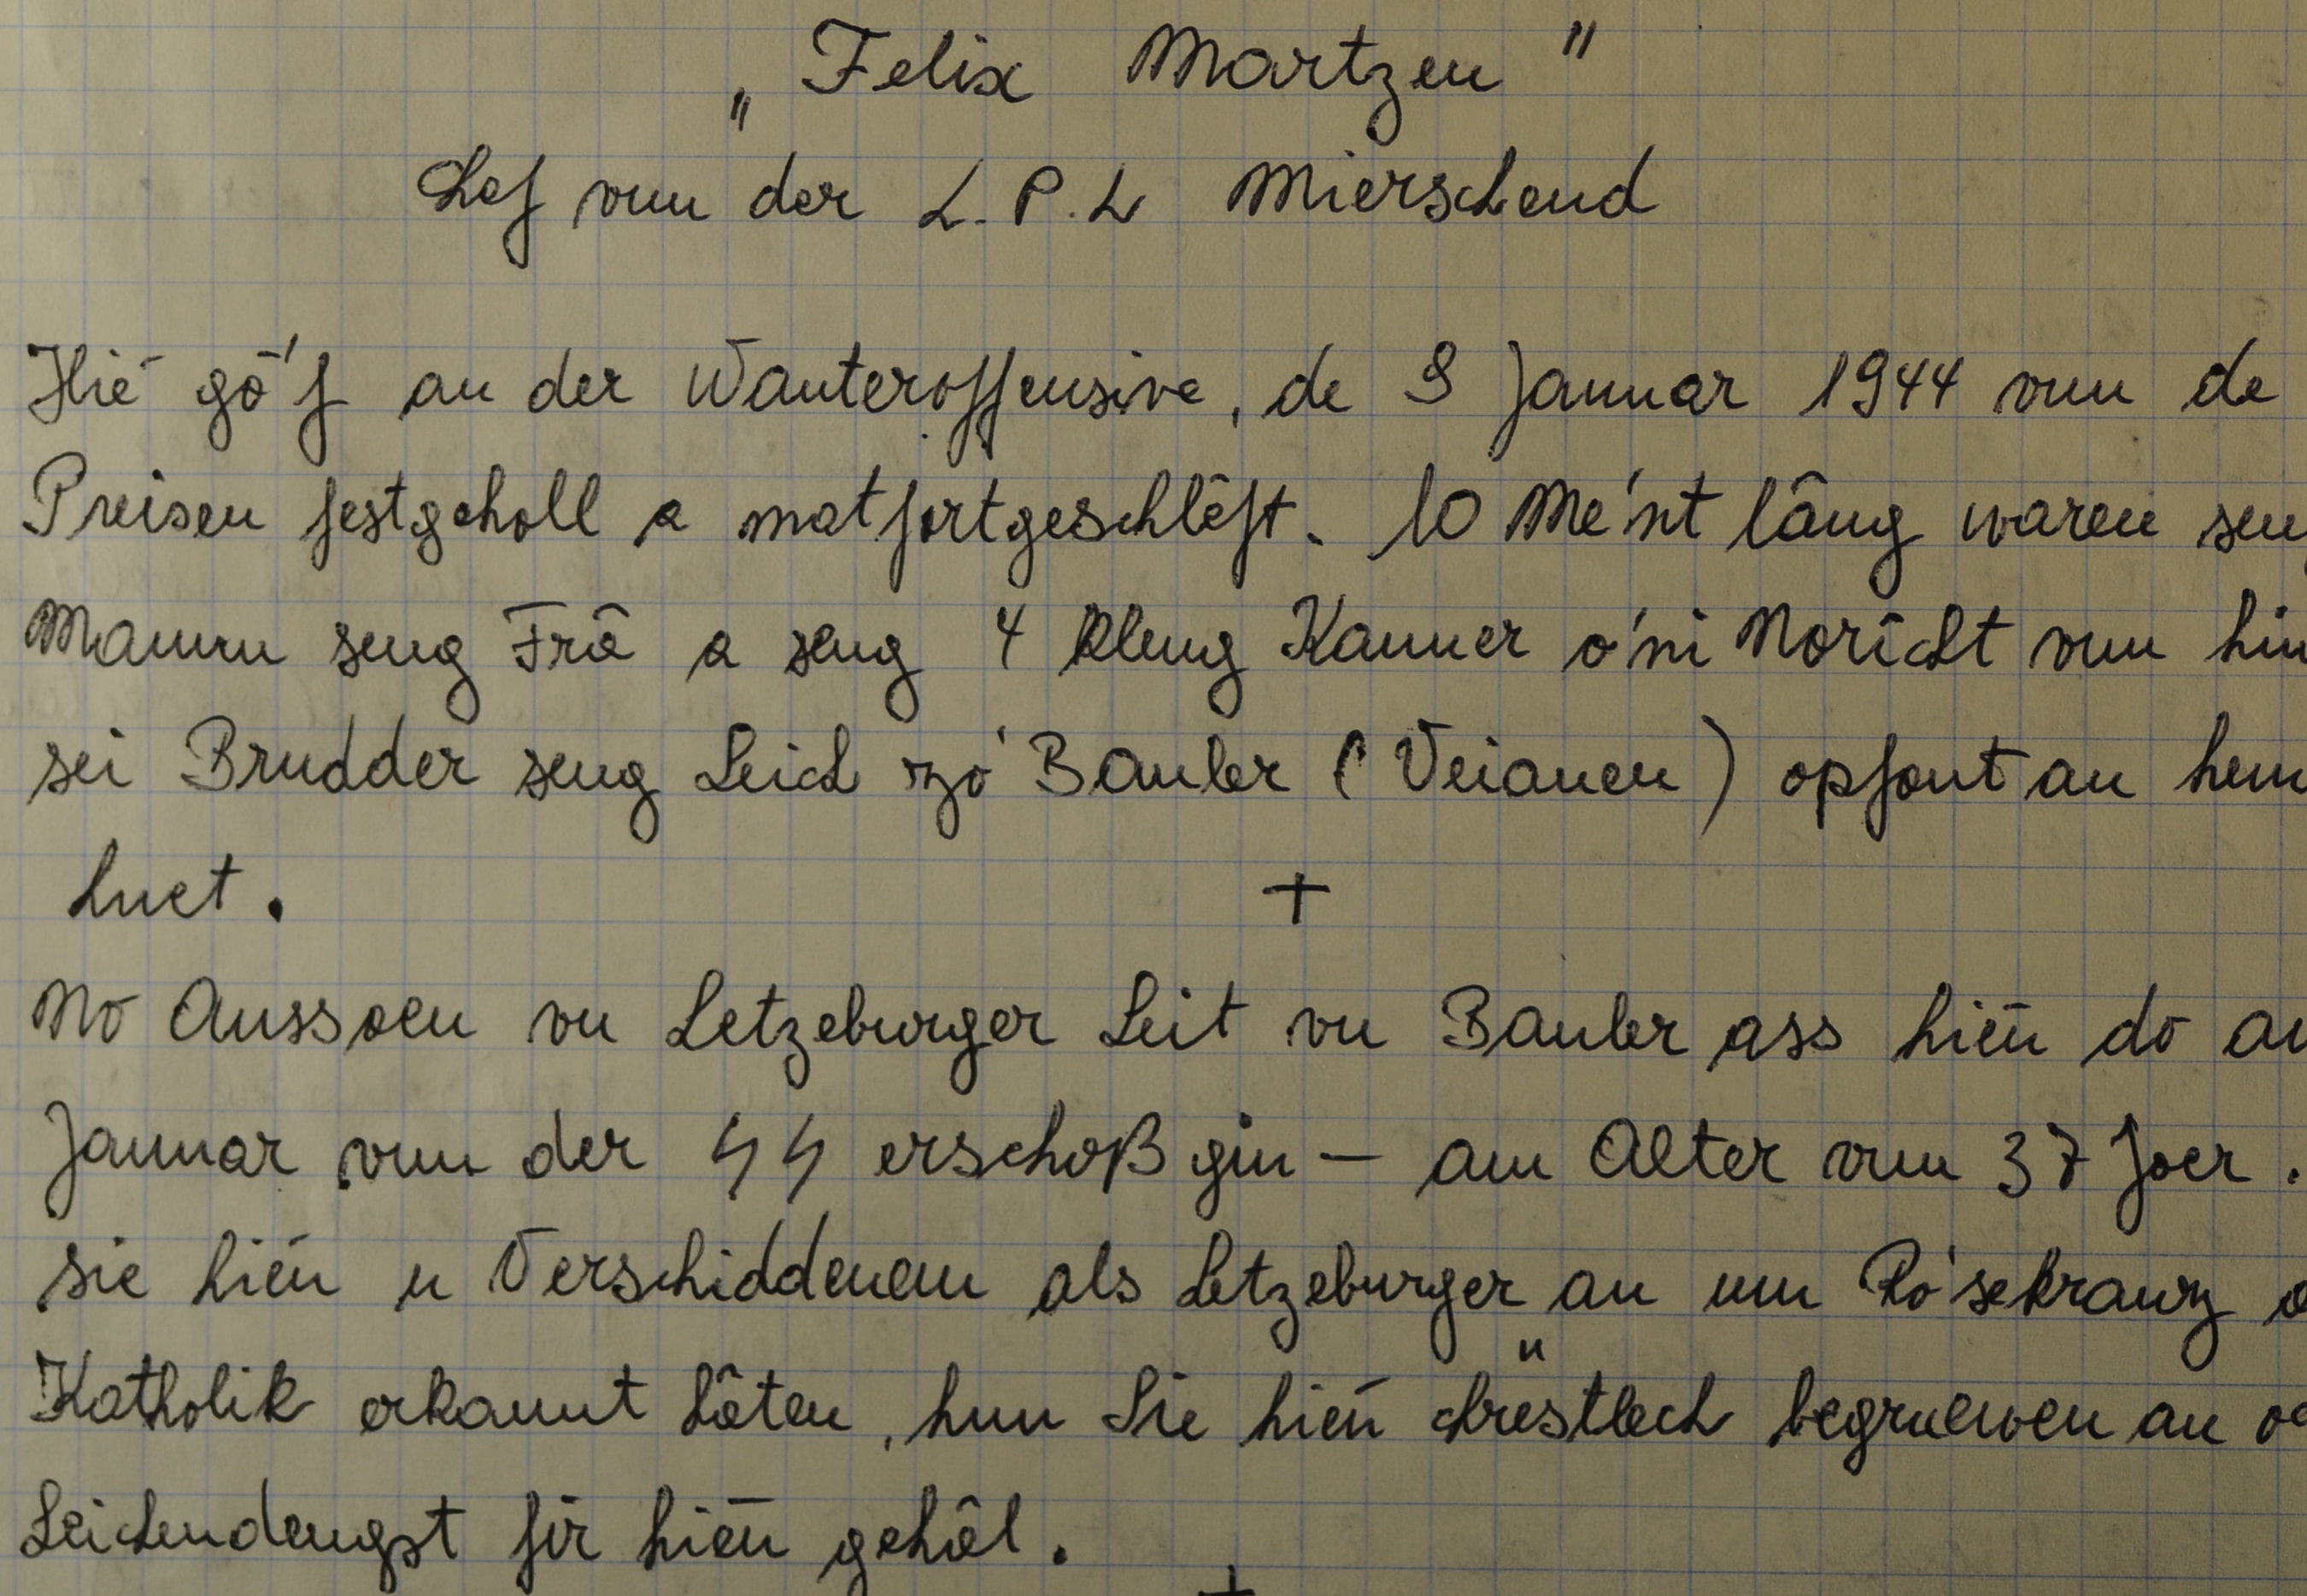 „Felix Martzen"
Chef vun der L.P.L Mierschend
Hie gó'f an der Wanteroffensive, de 9 Januar 1944 vun de
Preisen festgeholl a matfortgeschléft. 10 Mé'nt lâng waren seng
Mamm seng Frâ a seng 4 kleng Kanner ó'ni Noricht vun him
sei Brudder seng Leich zó' Bauler (Veianen) opfont an hem
huet.
+
No Aussoen vu Letzeburger Leit vu Bauler ass hien do
Januar vun der SS erschoß gin — am Alter vun 37 Joer.
sie hien u Verschiddenem als Letzeburger an um Ró'sekranz
Katholik erkannt hâten, hun Sie hien chrëstlech begruewen an
Leichendengst fir hien gehâl.
+